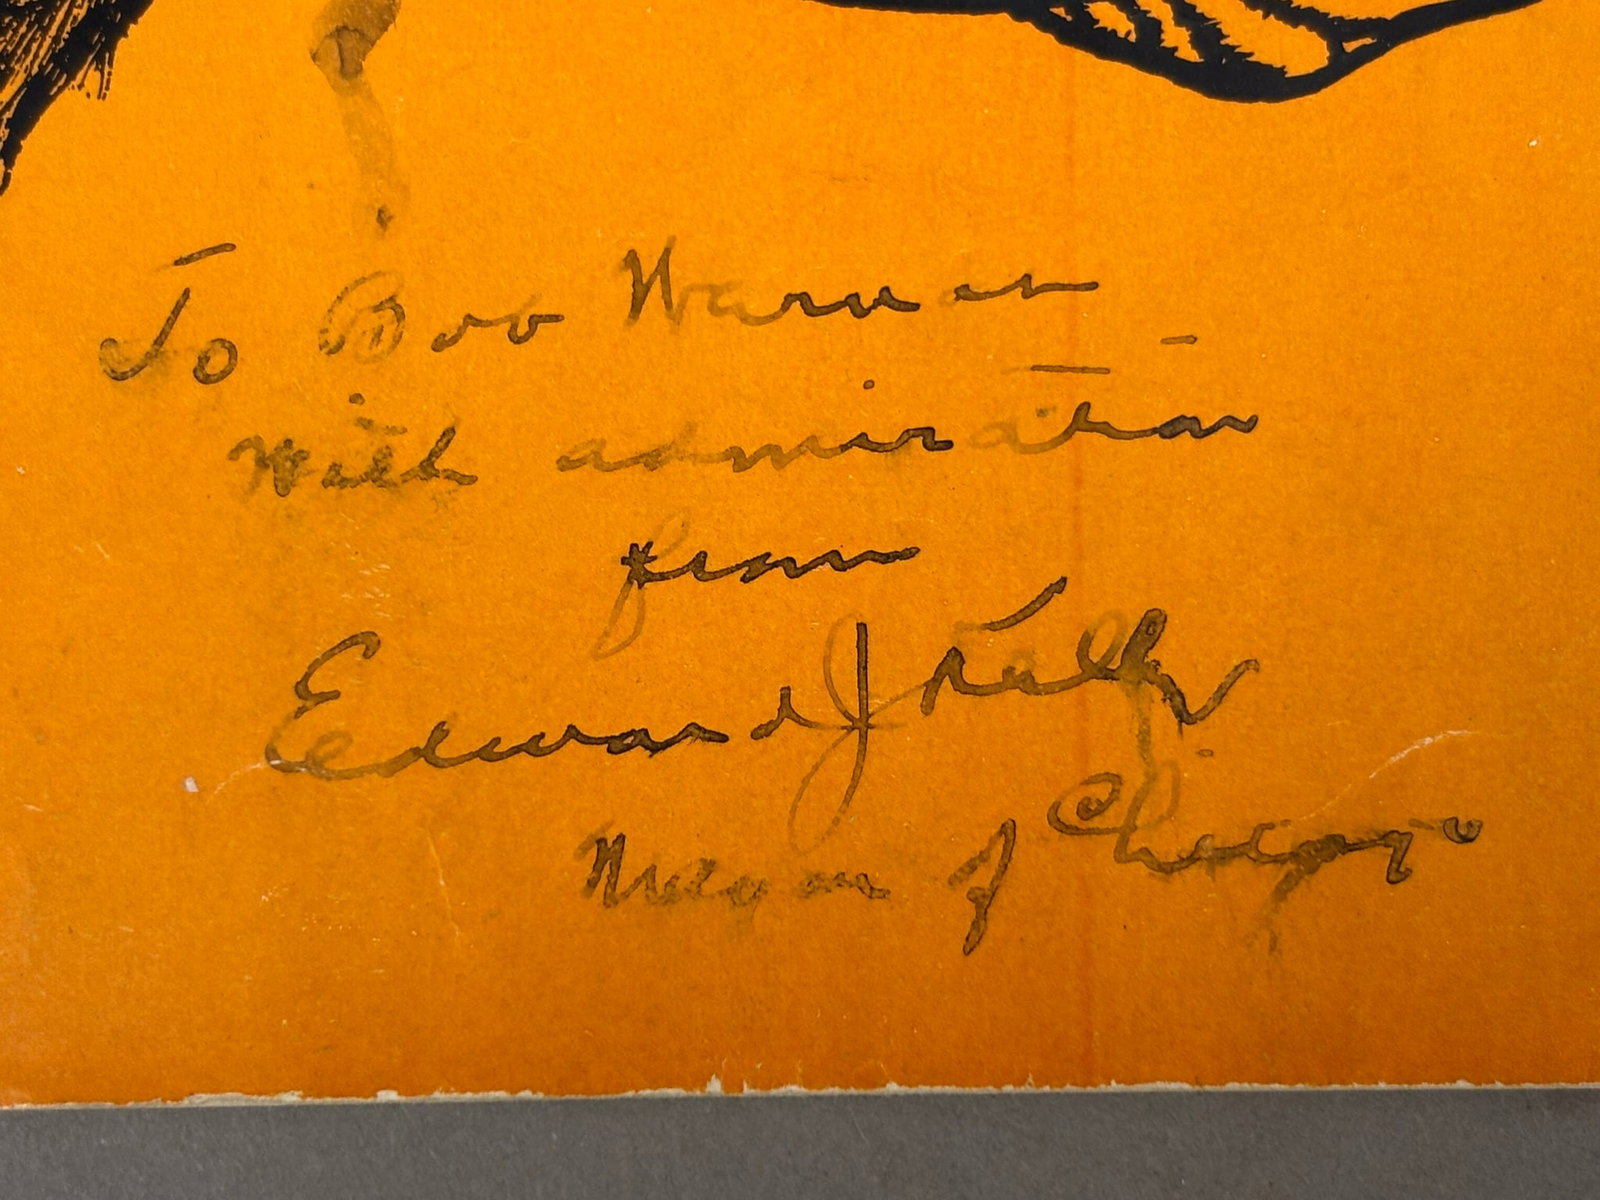 To Bob Warner
With admiration
from
Edward J Kelly
Mayor of Chicago